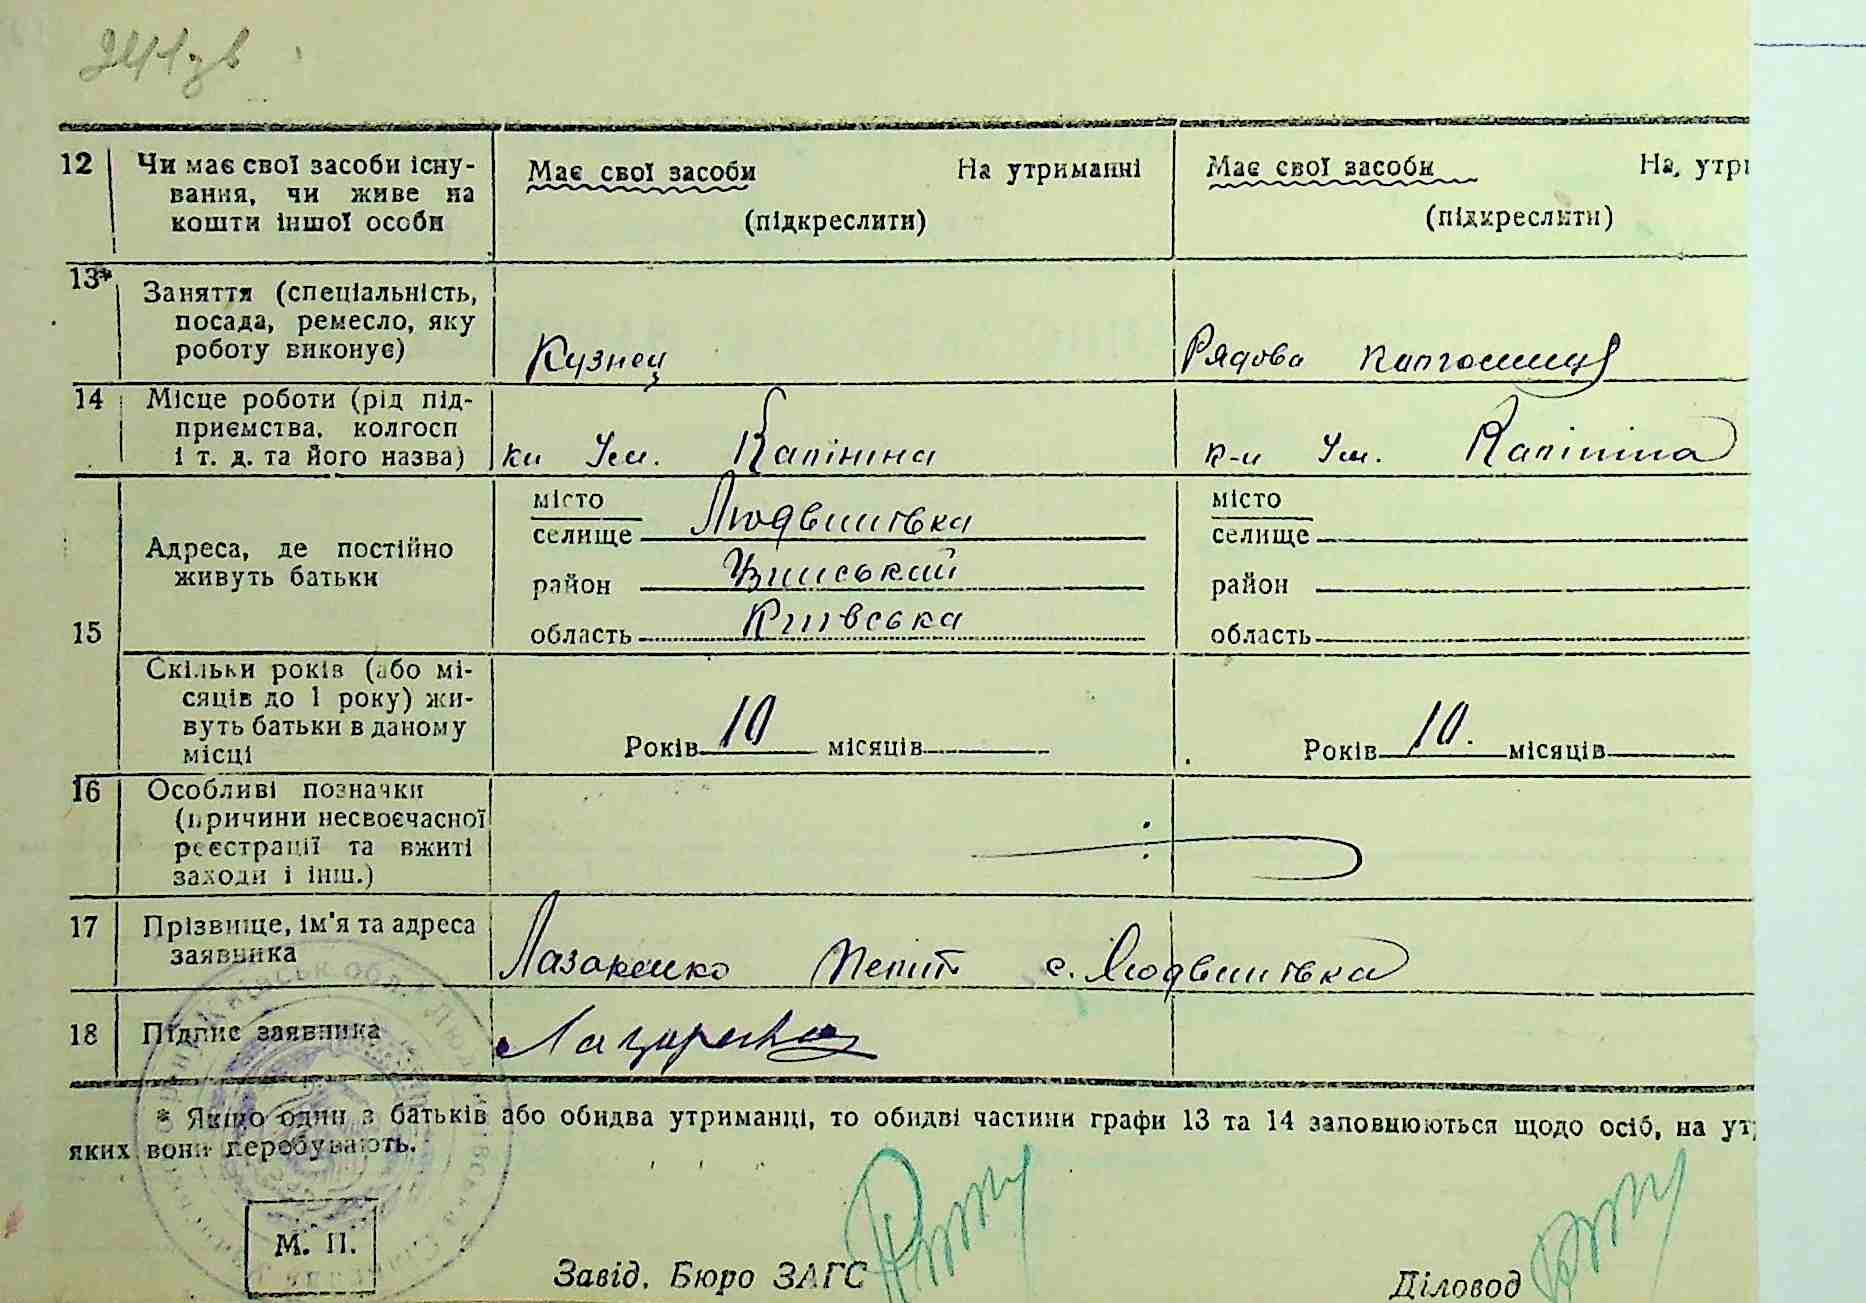 241зв
12 Чи має свої засоби існу- Має свої засоби На утриманні Має свої засоби На утри
вання, чи живе на
кошти іншої особи (підкреслити) (підкреслити)
13* Заняття (спеціальність,
посада, ремесло, яку
роботу виконує) Кузнец Рядова колгосниця
14 Місце роботи (рід під-
приємства, колгосп
і т. д. та його назва) кл Ім. Калініна к-п Ім. Калініна
місто місто
селище Людвинівка селище
Адреса, де постійно
живуть батьки район Узинський район
15 область Київська область
Скільки років (або мі-
сяців до 1 року) жи-
вуть батьки в даному
місці Років 10 місяців Років 10. місяців
16 Особливі позначки
(причини несвоєчасної
реєстрації та вжиті
заходи і інш.)
17 Прізвище, ім'я та адреса
заявника Лазаренко с. Людвинівка
18 Підпис заявника
* Якщо один з батьків або обидва утриманці, то обидві частини графи 13 та 14 заповнюються щодо осіб, на ут
яких вони перебувають.
М. П.
Завід. Бюро ЗАГС Діловод